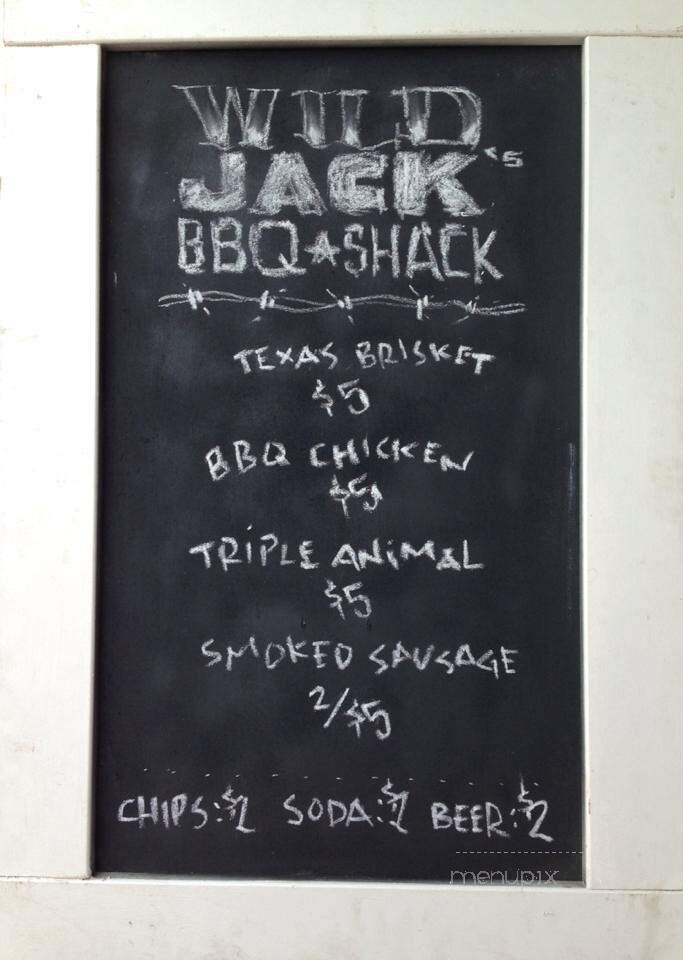 WILD
JACK's
BBQ★SHACK
TEXAS BRISKET
$5
BBQ CHICKEN
$5
TRIPLE ANiMAL
$5
SMOKED SAUSAGE
2/$5
CHIPS:$1 SODA:$1 BEER:$2
menupix